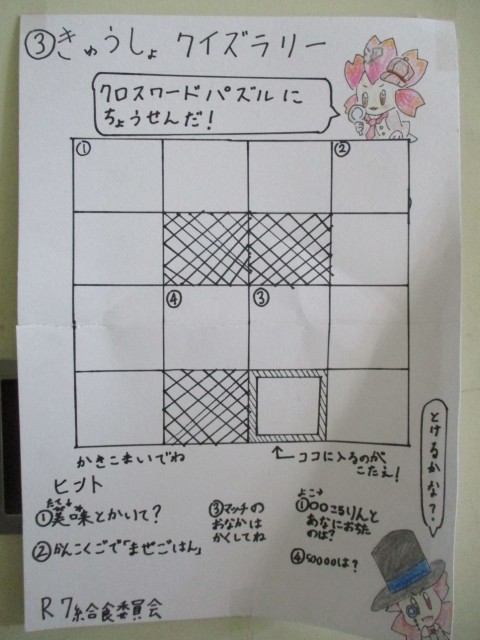 ③きゅうしょ クイズラリー
クロスワードパズルに
ちょうせんだ！
①
②
④
③
かきこまいでね
ココに入るのが
こたえ！
とけるかな？
ヒント
たて↓
①美味とかいて？
②かんこくごで「まぜごはん」
③マッチの
おなかは
かくしてね
よこ→
①〇〇ころりんと
あなにおちた
のは？
④50000は？
R7給食委員会